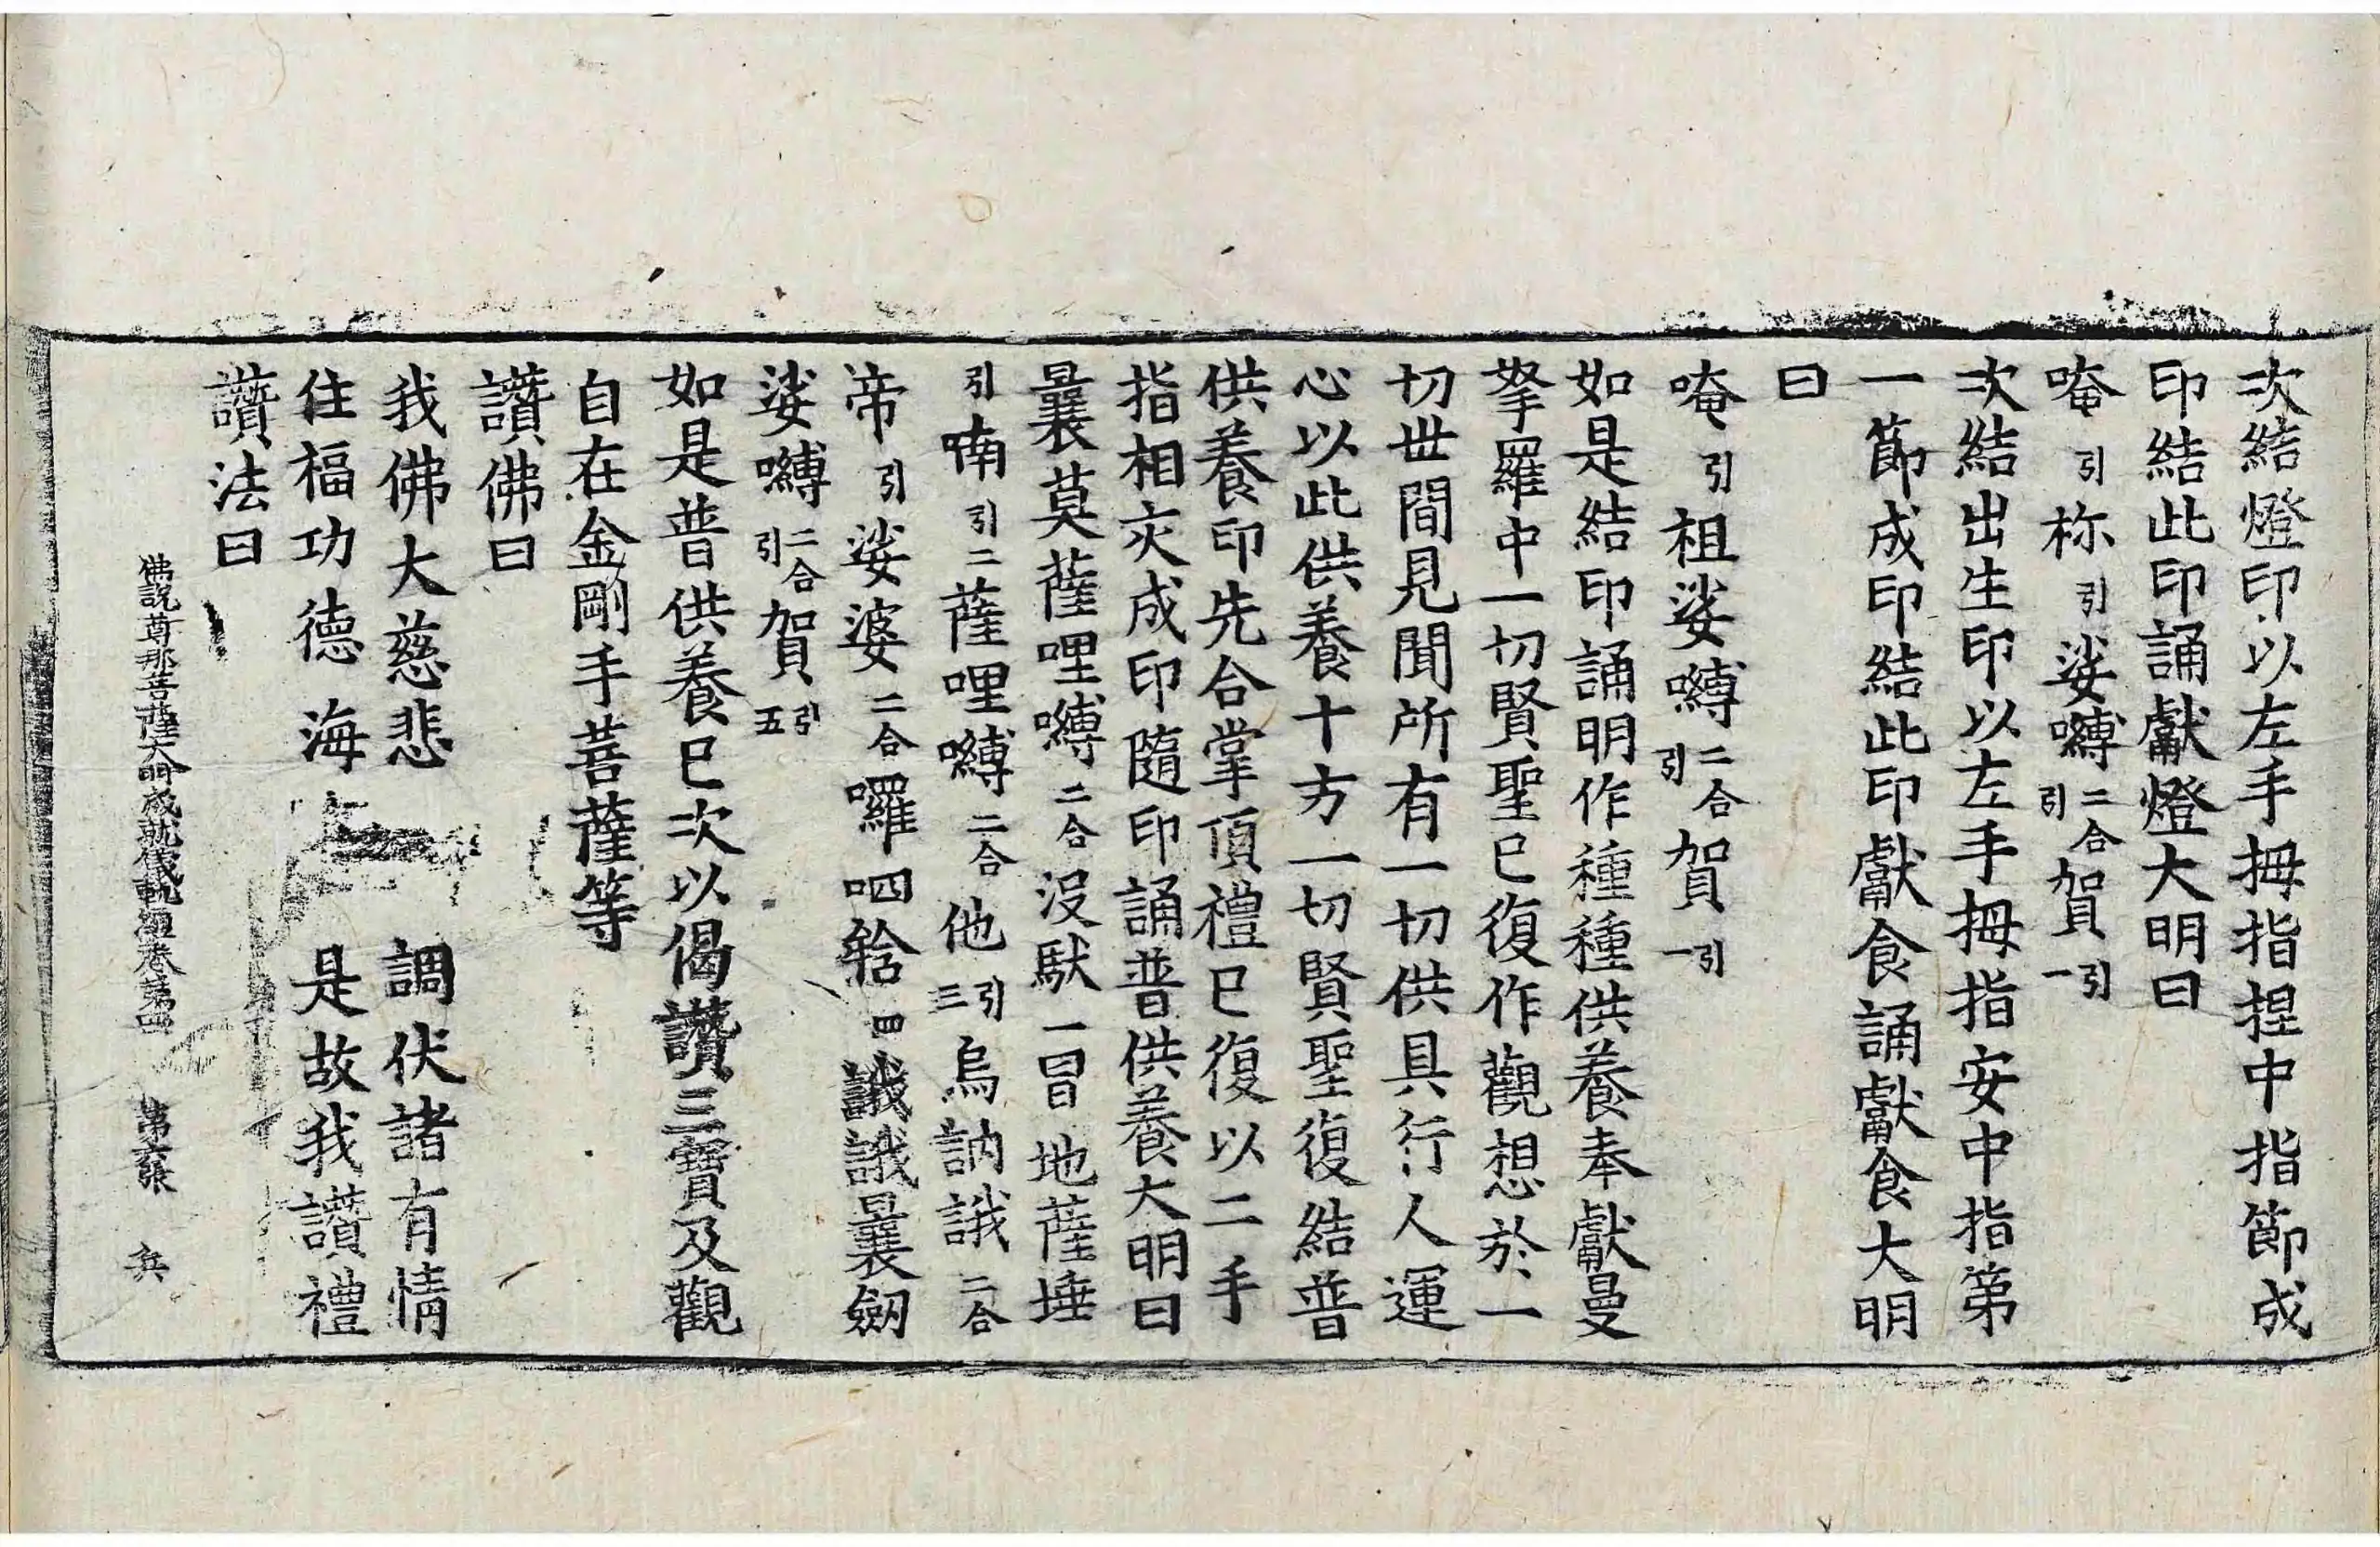 次結燈印以左手拇指捏中指節成
印結此印誦獻燈大明曰
唵引祢引娑嚩二合引賀引一
次結出生印以左手拇指安中指第
一節成印結此印獻食誦獻食大明
曰
唵引祖娑嚩二合引賀引一
如是結印誦明作種種供養奉獻曼
拏羅中一切賢聖已復作觀想於一
切世間見聞所有一切供具行人運
心以此供養十方一切賢聖復結普
供養印先合掌頂禮已復以二手
指相交成印隨印誦普供養大明曰
曩莫薩哩嚩二合沒馱一冒地薩埵
引喃引二薩哩嚩二合他引三烏訥誐二合
帝引娑婆二合囉呬𤚥四誐誐曩劒
娑嚩二合引賀引五
如是普供養已次以偈讚三寶及觀
自在金剛手菩薩等
讚佛曰
我佛大慈悲 調伏諸有情
住福功德海 是故我讚禮
讚法曰
佛說尊那菩薩大明成就儀軌經卷第四 第六張 兵